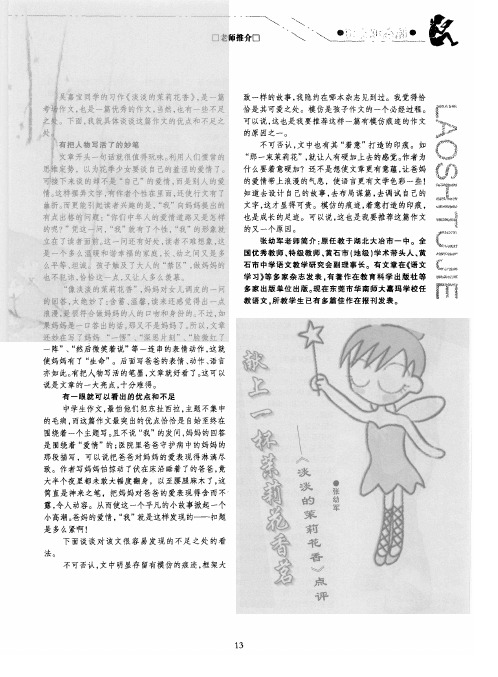 □老师推介□
吴嘉宝同学的习作《淡淡的茉莉花香》,是一篇
考场作文,也是一篇优秀的作文,当然,也有一些不足
之处。下面,我就具体谈谈这篇作文的优点和不足之
处。
有把人物写活了的妙笔
文章开头一句话就很值得玩味。利用人们惯常的
思维定势,以为花季少女要谈自己的羞涩的爱情了。
可接下来谈的却不是“自己”的爱情,而是别人的爱
情。
有点出格的问题:“你们中年人的爱情道路又是怎样
的呢?”凭这一问,“我”就有了个性,“我”的形象就
立在了读者面前。这一问还有好处,读者不难想象,这
是一个多么温暖和谐幸福的家庭,长、幼之间又是多
么平等、坦诚。孩子触及了大人的“禁区”,做妈妈的
也不怒,恰恰这一点,又让人多么羡慕。
《淡淡的茉莉花香》,妈妈对女儿调皮的一问
的回答,太绝妙了:含蓄、温馨,读来还感觉得出一点
浪漫,挺很符合做妈妈的人的口吻和身份的。不过,如
果妈妈是一口答出的话,那又不是妈妈了。所以,文章
还妙在写了妈妈“一愣”、“脸微红了
一阵”、“然后微笑着说”等一连串的表情动作,这就
使妈妈有了“生命”。后面写爸爸的表情、动作、语言
亦如此。有把人物写活的笔墨,文章就好看了。这可以
说是文章的一大亮点,十分难得。
有一眼就可以看出的优点和不足
中学生作文,最怕他们犯东扯西拉,主题不集中
的毛病,而这篇作文最突出的优点恰恰是自始至终在
围绕着一个主题写。且不说“我”的发问,妈妈的回答
是围绕着“爱情”的;医院里爸爸守护病中的妈妈的
那段描写,可以说把爸爸对妈妈的爱表现得淋漓尽
致。作者写妈妈怕惊动了伏在床沿睡着了的爸爸,竟
大半个夜里都未敢大幅度翻身。以至腰腿麻木了,这
简直是神来之笔,把妈妈对爸爸的爱表现得含而不
露,令人动容。从而使这一个平凡的小故事掀起一个
小高潮。爸妈的爱情,“我”就是这样发现的——扣题
是多么紧啊!
下面谈谈对该文很容易发现的不足之处的看
法。
不可否认,文中明显存留有模仿的痕迹,框架大
致一样的故事,我隐约在哪本杂志见到过。我觉得恰
恰是其可爱之处。模仿是孩子作文的一个必经过程。
可以说,这也是我要推荐这样一篇有模仿痕迹的作文
的原因之一。
不可否认,文中也有其“着意”打造的印痕。如
“那一束茉莉花”,就让人有硬加上去的感觉。作者为
什么要着意硬加?还不是想使文章更有意蕴,让爸妈
的爱情带上浪漫的气息,使语言更有文学色彩一些!
知道去设计自己的故事,去布局谋篇,去调试自己的
文字,这才显得可贵。模仿的痕迹,着意打造的印痕,
也是成长的足迹。可以说,这也是我要推荐这篇作文
的又一个原因。
张幼军老师简介:原任教于湖北大冶市一中。全
国优秀教师、特级教师、黄石市(地级)学术带头人、黄
石市中学语文教学研究会副理事长。有文章在《语文
学习》等多家杂志发表,有著作在教育科学出版社等
多家出版单位出版。现在东莞市华南师大嘉玛学校任
教语文,所教学生已有多篇佳作在报刊发表。
献上一杯茉莉花香茗
——《淡淡的茉莉花香》点评
●张幼军
LAOSHI TUIJIE
13